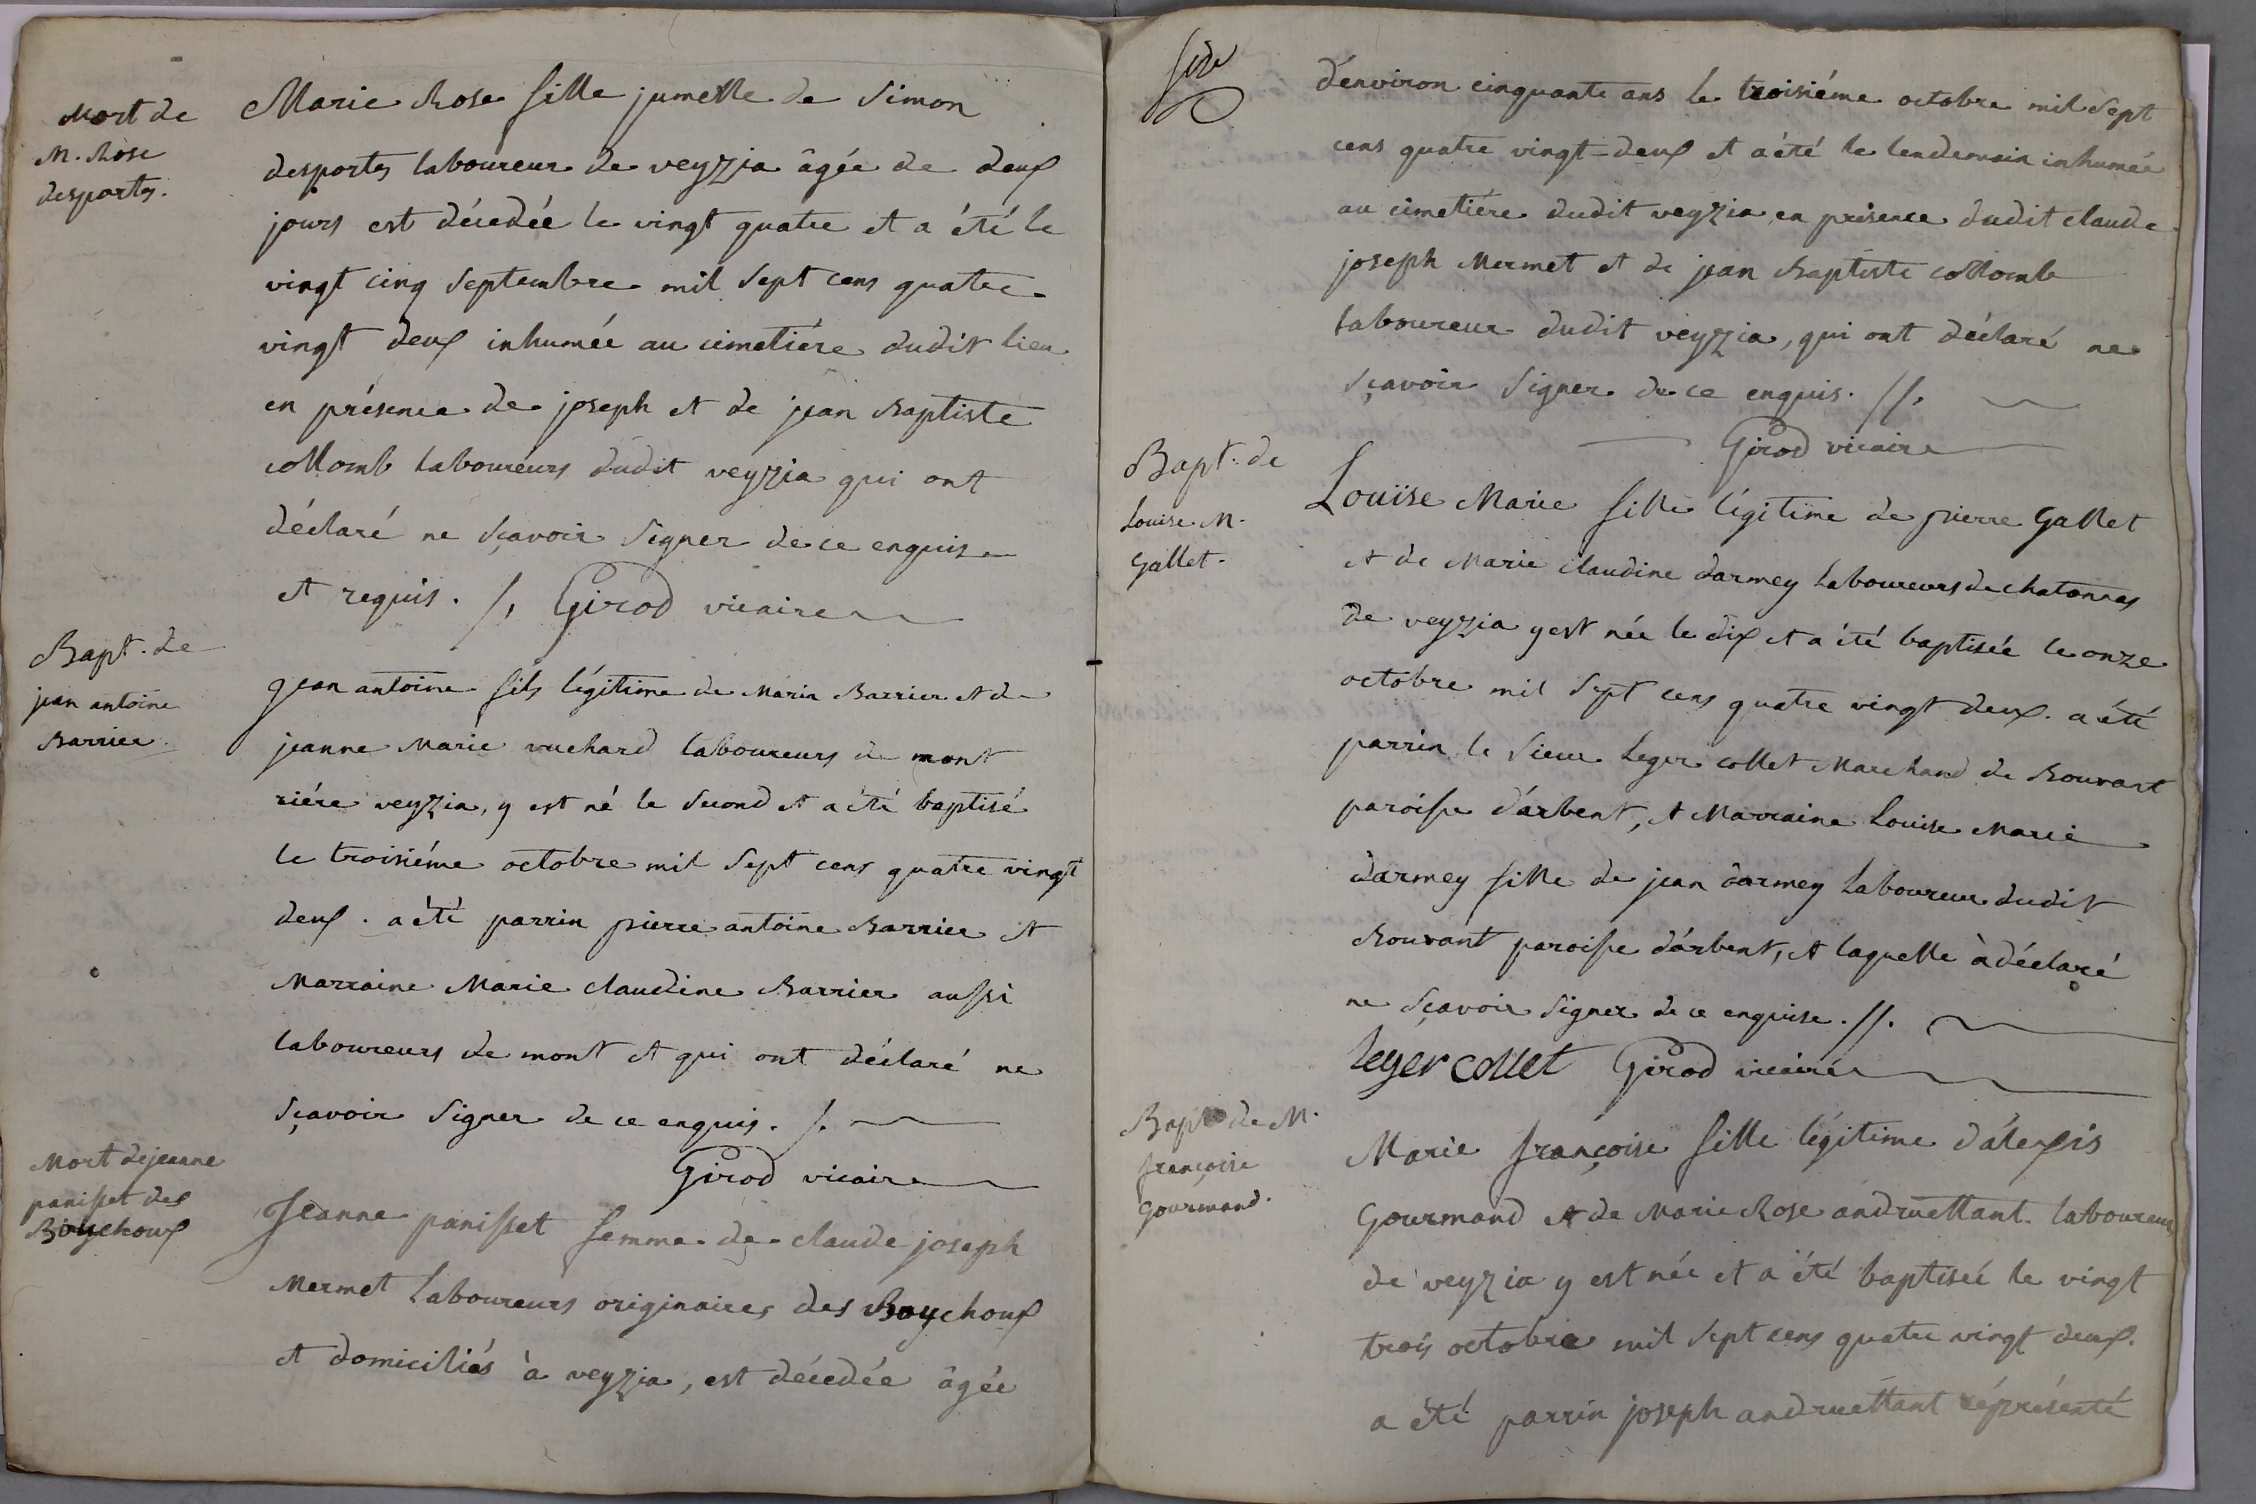 Mort de
M. Rose
desportes.
Marie Rose fille jumelle de Simon
desportes laboureur de veyzia âgée de deux
jours est décedée le vingt quatre et a été le
vingt cinq Septembre mil Sept cens quatre
vingt deux inhumée au cimetiére dudit lieu
en présence de joseph et de jean Baptiste
collomb laboureurs dudit veyzia qui ont
déclaré ne sçavoir signer de ce enquis
et requis. /. Girod vicaire
Bapt. de
jean antoine
Barrier.
jean antoine fils légitime de Marin Barrier et de
jeanne Marie vuchard laboureurs de mont
riére veyzia, y est né le second et a été baptisé
le troisiéme octobre mil Sept cens quatre vingt
deux. a été parrin pierre antoine Barrier et
Marraine Marie claudine Barrier aussi
laboureurs de mont et qui ont déclaré ne
sçavoir signer de ce enquis. /.
Girod vicaire
Mort de jeanne
panisset des
Bouchoux
Jeanne panisset femme de claude joseph
Mermet laboureurs originaires des Bouchoux
et domiciliés à veyzia, est décedée âgée
d'environ cinquante ans le troisiéme octobre mil Sept
cens quatre vingt-deux et a été le lendemain inhumée
au cimetiére dudit veyzia en présence dudit claude
joseph Mermet et de jean Baptiste collomb
laboureur dudit veyzia, qui ont déclaré ne
sçavoir signer de ce enquis. //.
Girod vicaire
Bapt. de
Louise M.
Gallet.
Louise Marie fille légitime de pierre Gallet
et de Marie claudine darmey laboureurs de chatonnas
de veyzia y est née le dix et a été baptisée le onze
octobre mil Sept cens quatre vingt deux. a été
parrin le Sieur Leger collet Marchand de Bouvant
paroisse d'arbent, et Marraine Louise Marie
darmey fille de jean darmey laboureur dudit
Bouvant paroisse d'arbent, et laquelle à déclaré
ne sçavoir signer de ce enquise. //.
leger collet Girod vicaire
Bapt de M.
françoise
Gourmand.
Marie françoise fille légitime d'alexis
Gourmand et de Marie Rose andruettant laboureurs
de veyzia y est née et a été baptisée le vingt
trois octobre mil Sept cens quatre vingt deux.
a été parrin joseph andruettant réprésenté